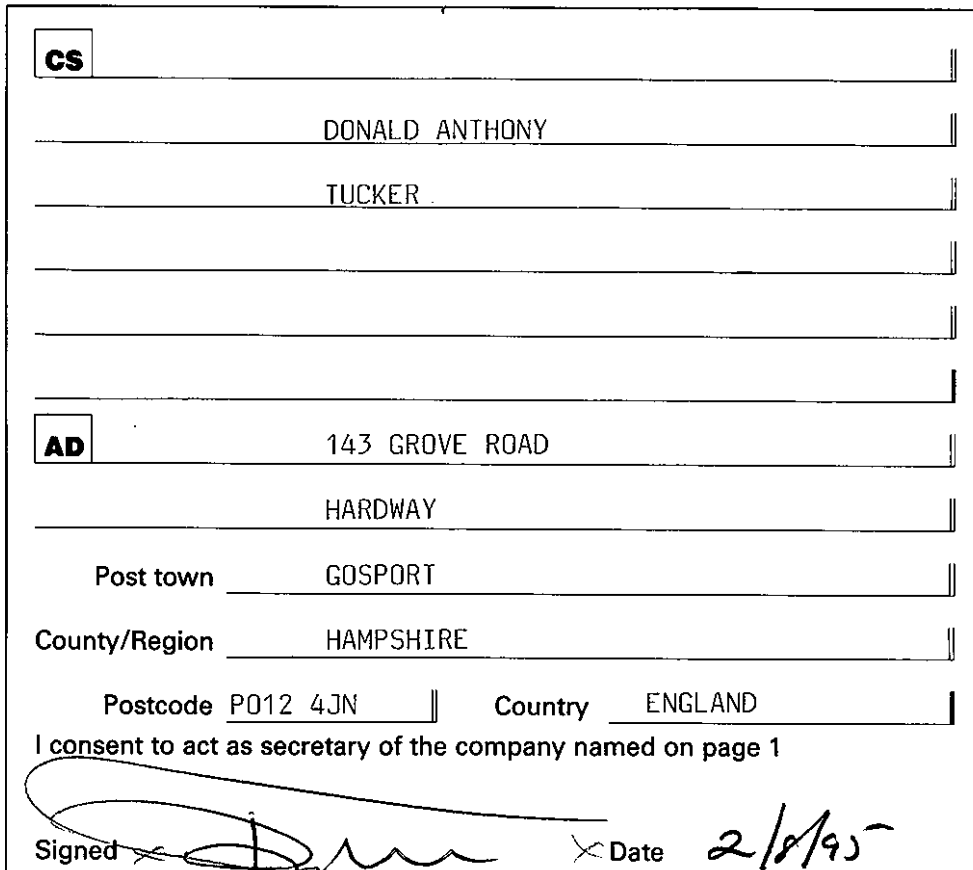 CS
DONALD ANTHONY
TUCKER
AD 143 GROVE ROAD
HARDWAY
Post town GOSPORT
County/Region HAMPSHIRE
Postcode PO12 4JN Country ENGLAND
I consent to act as secretary of the company named on page 1
Signed Date 2/8/95